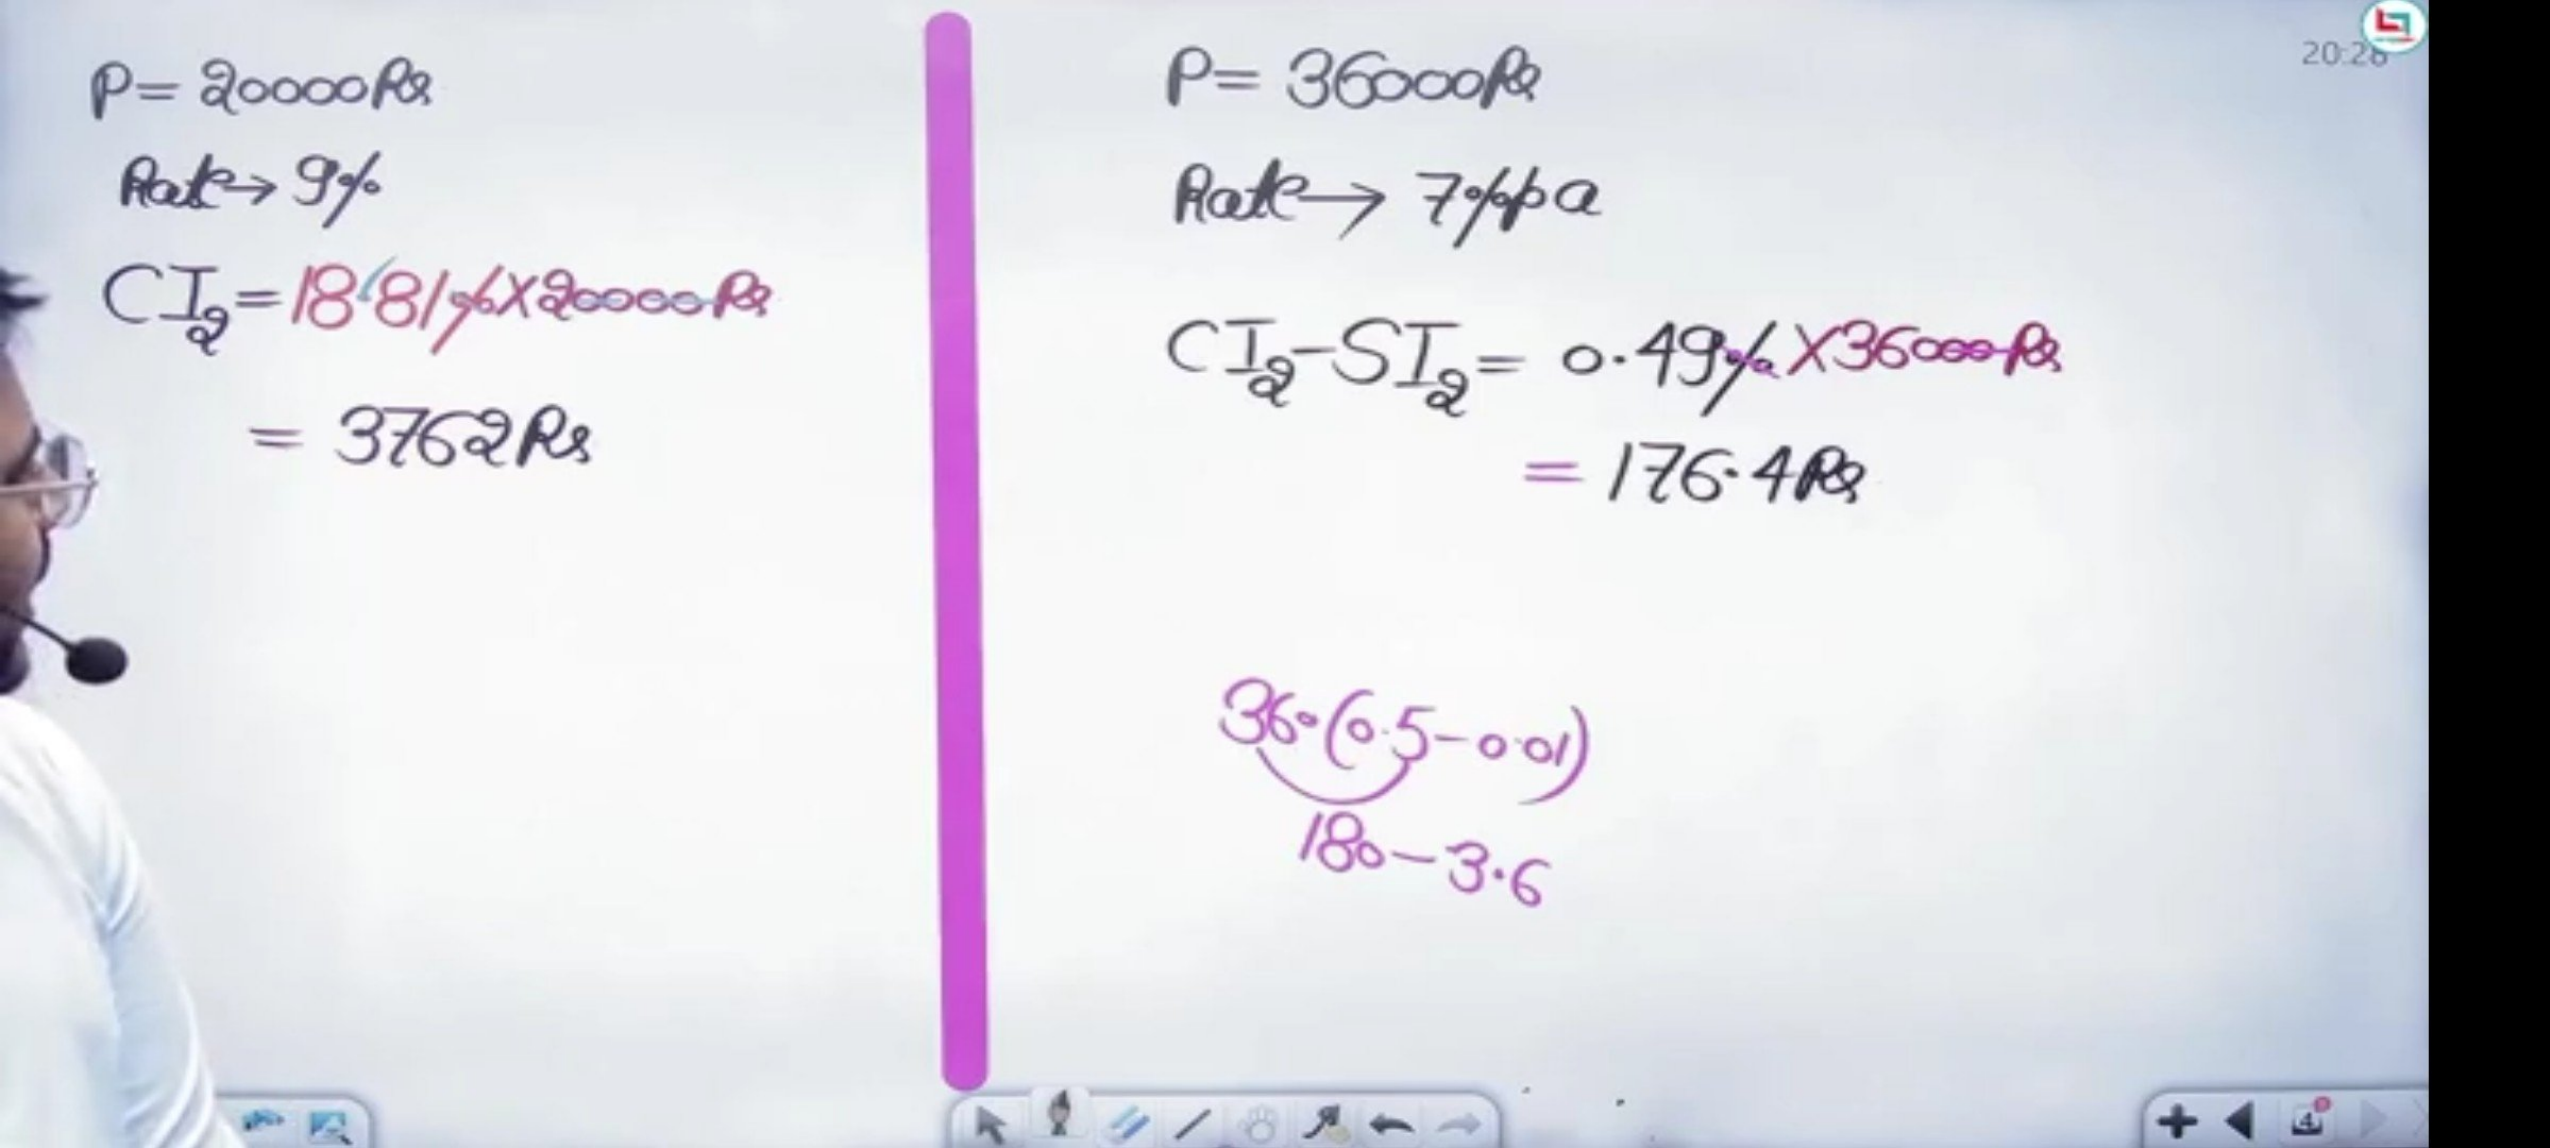 P= 20000Rs
Rate→ 9%
CI2=18.81%X20000Rs
= 3762Rs
20:26
P= 36000Rs
Rate→ 7%pa
CI2-SI2= 0.49%X36000Rs
= 176.4Rs
360(0.5-0.01)
180-3.6
4